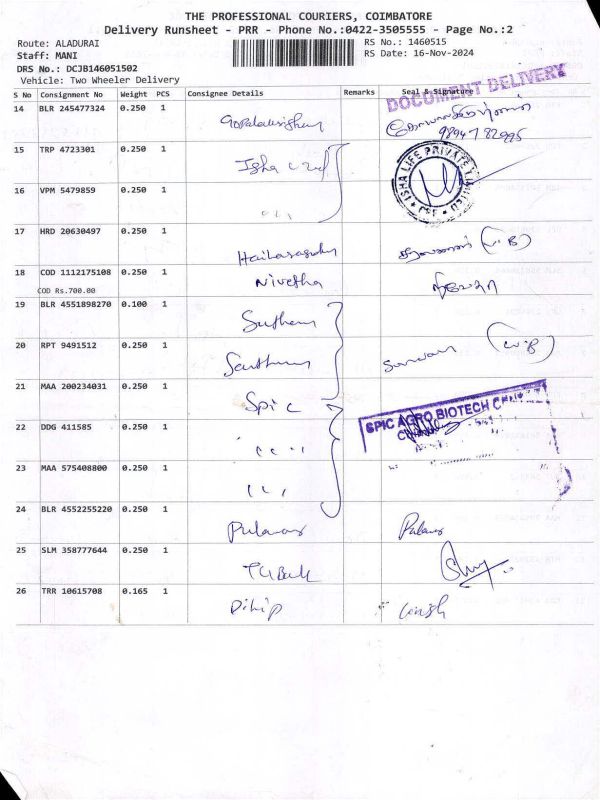 THE PROFESSIONAL COURIERS, COIMBATORE
Delivery Runsheet - PRR - Phone No.:0422-3505555 - Page No.:2
Route: ALADURAI RS No.: 1460515
Staff: MANI RS Date: 16-Nov-2024
DRS No.: DCJB146051502
Vehicle: Two Wheeler Delivery
DOCUMENT DELIVERY
S No Consignment No Weight PCS Consignee Details Remarks Seal & Signature
14 BLR 245477324 0.250 1 Gopalakrishnan
15 TRP 4723301 0.250 1 Isha
ISHA LIFE PRIVATE LIMITED
16 VPM 5479859 0.250 1 " "
17 HRD 20630497 0.250 1
18 COD 1112175108 0.250 1 Nivetha நிவேதா
COD Rs.700.00
19 BLR 4551898270 0.100 1
20 RPT 9491512 0.250 1
21 MAA 200234031 0.250 1 Spic
SPIC AGRO BIOTECH
22 DDG 411585 0.250 1 " "
23 MAA 575408800 0.250 1 " "
24 BLR 4552255220 0.250 1
25 SLM 358777644 0.250 1
26 TRR 10615708 0.165 1 Dilip